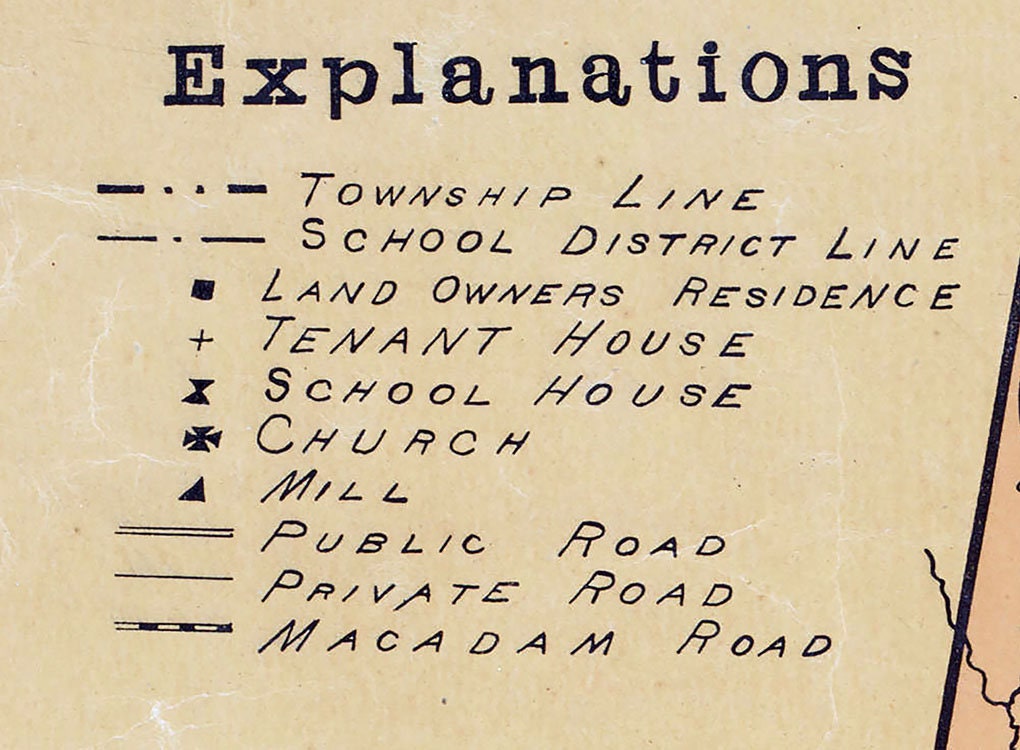 Explanations
TOWNSHIP LINE
SCHOOL DISTRICT LINE
LAND OWNERS RESIDENCE
TENANT HOUSE
SCHOOL HOUSE
CHURCH
MILL
PUBLIC ROAD
PRIVATE ROAD
MACADAM ROAD